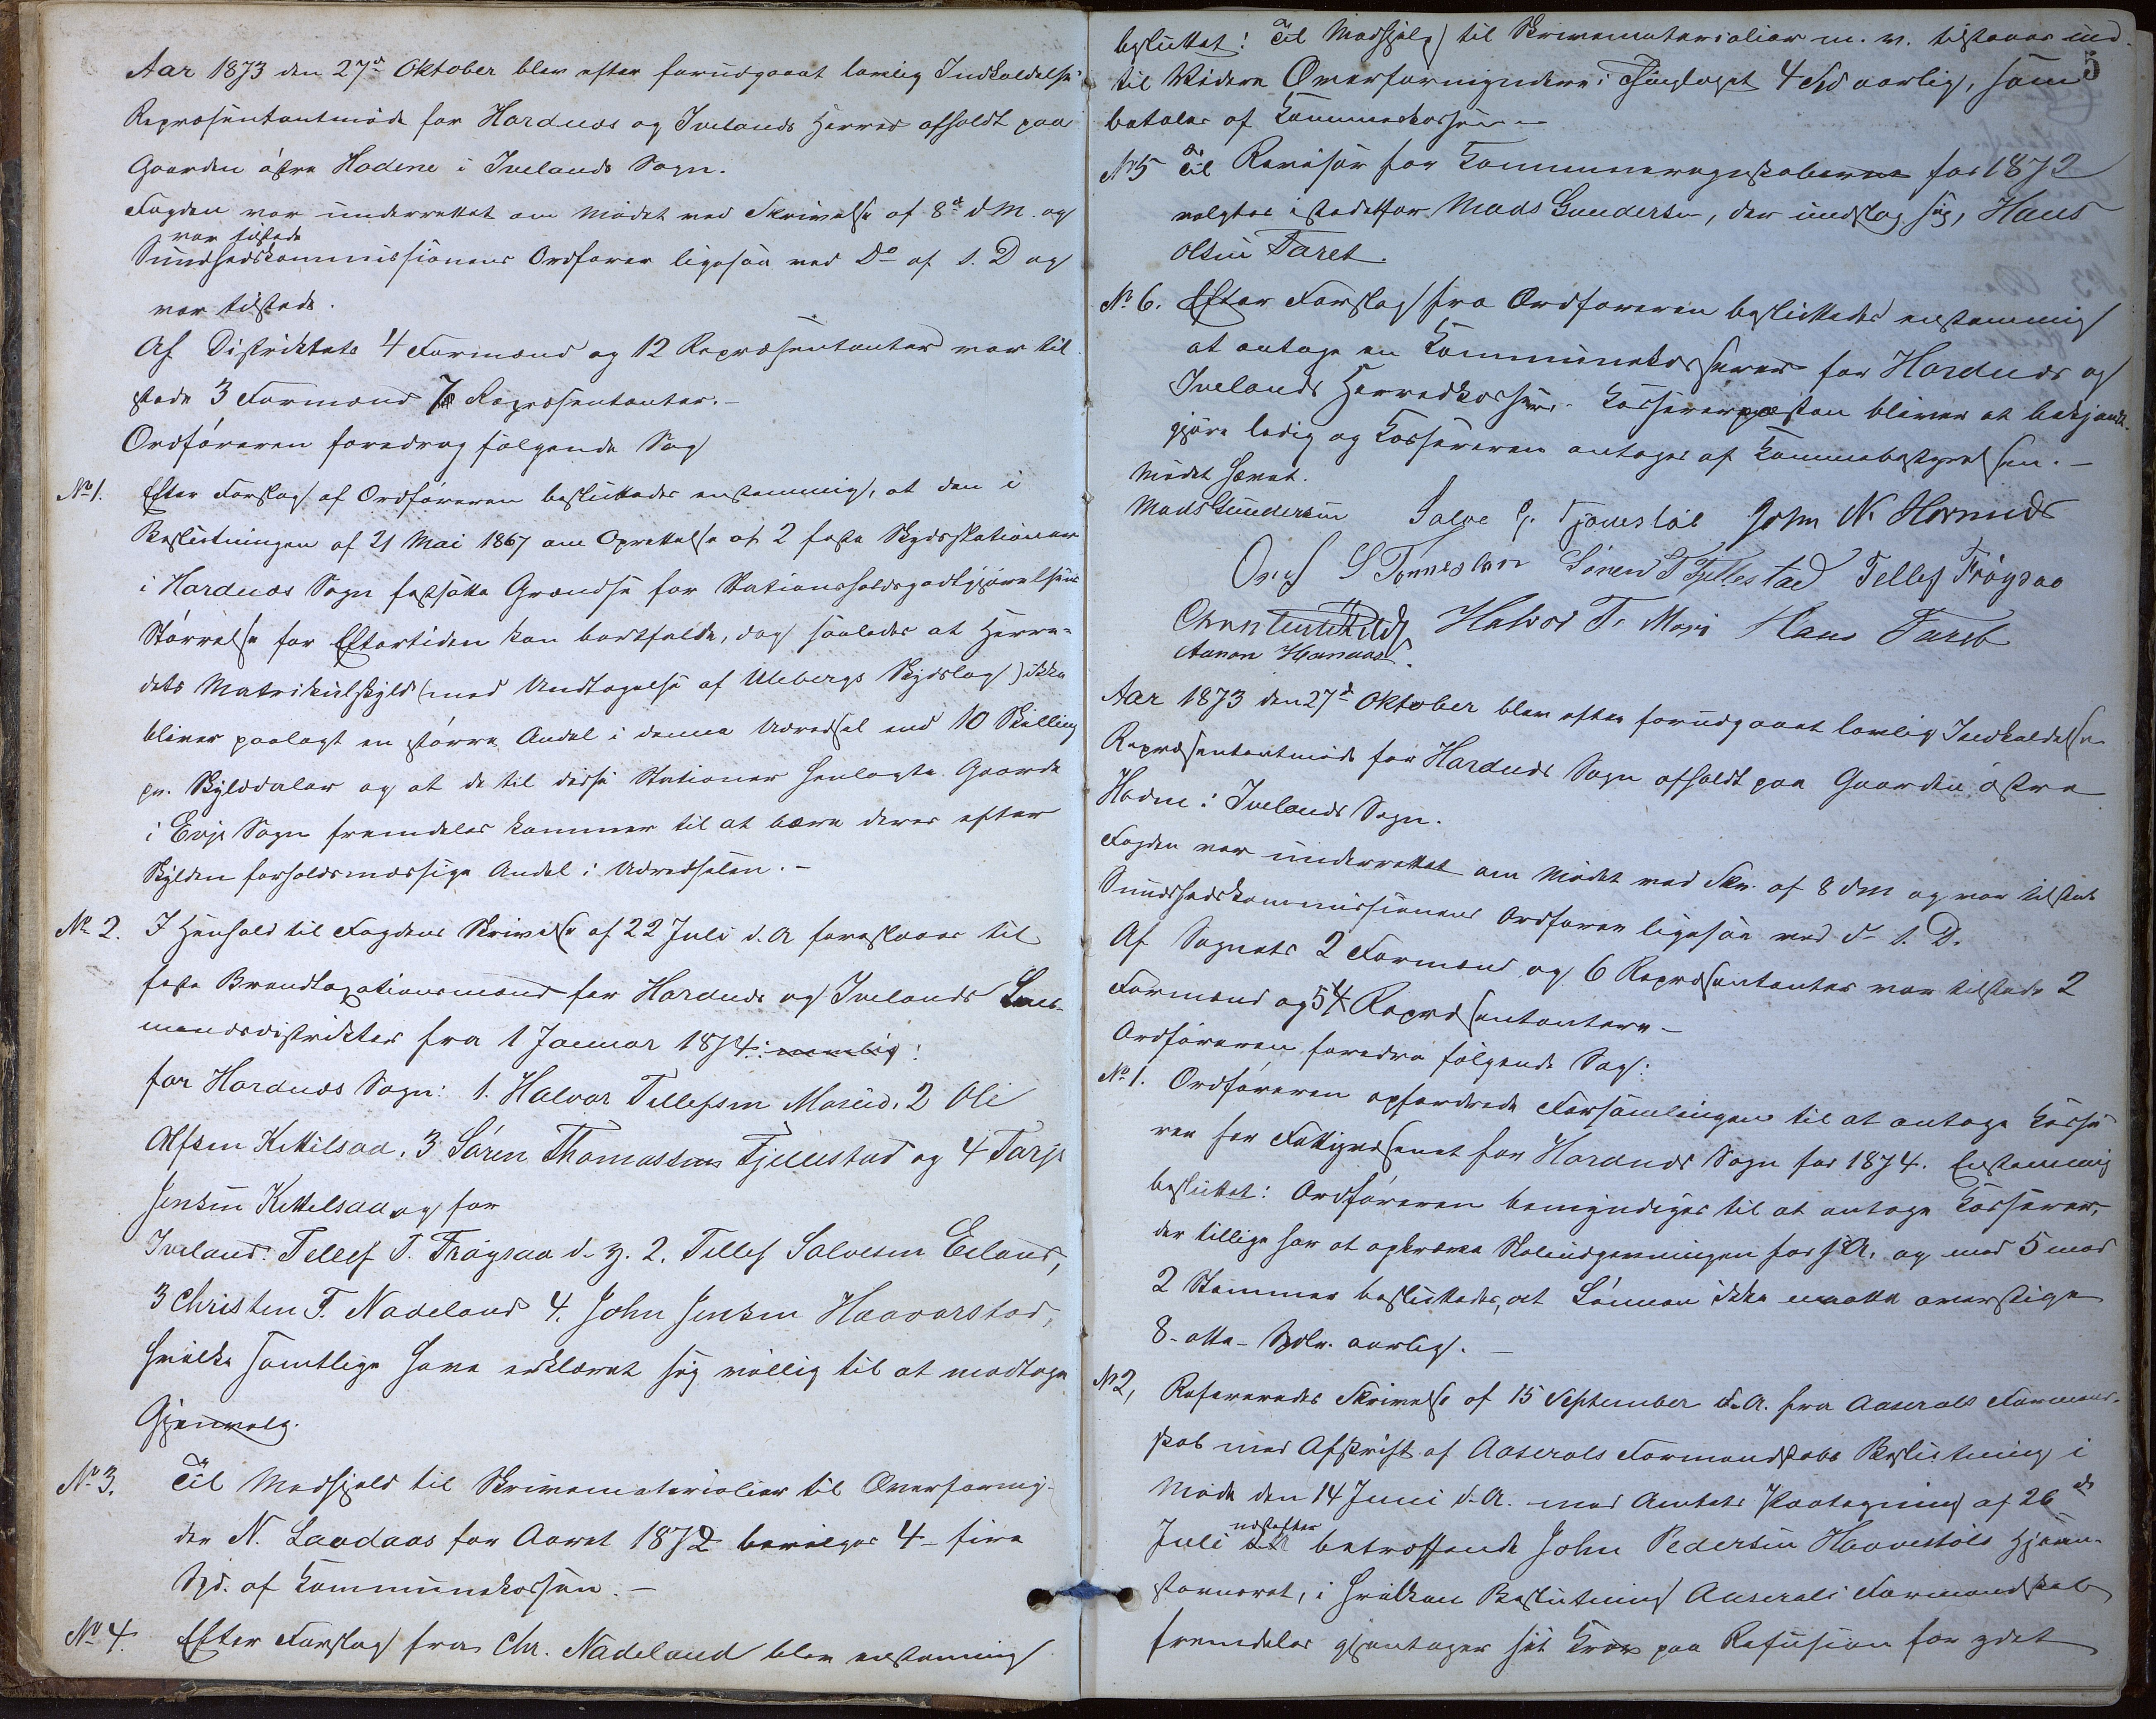 Aar 1873 den 27d Oktober blev efter forudgaaet lovlig Indkaldelse
Repræsentantmøde for Hordnæs og Ivelands Herred afholdt paa
Gaarden østre Hodne i Ivelands Sogn.
Fogden var underrettet om Mødet ved Skrivelse af 8d d M. og
var tilstede
Sundhedskommissionens Ordfører ligesaa ved Do af s. D og
var tilstede.
Af Distriktets 4 Formænd og 12 Repræsentanter var til
stede 3 Formænd 7 Repræsentanter.-
Ordføreren foredrog følgende Sag
No 1. Efter Forslag af Ordføreren besluttedes enstemmig, at den i
Beslutningen af 21 Mai 1867 om Oprettelse af 2 faste Skydsstationer
i Hordnæs Sogn fastsatte Grændse for Stationsholdsgodtgjørelsens
Størrelse for Eftertiden kan bortfalde, dog saaledes at Herre-
dets Matrikulskyld (med Undtagelse af Ulebergs Skydslag) ikke
bliver paalagt en større Andel i denne Udredsel end 10 Skilling
pr. Skylddaler og at de til disse Stationer henlagte Gaarde
i Evje Sogn fremdeles kommer til at bære deres efter
Skylden forholdsmæssige Andel i Udredselen.-
No 2. I Henhold til Fogdens Skrivelse af 22 Juli d. A foreslaaes til
faste Brandtaxationsmænd for Hordnæs og Ivelands Lens-
mandsdistrikter fra 1 Januar 1874: nemlig:
for Hordnæs Sogn: 1. Halvor Tellefsen Mosied. 2 Ole
Alfsen Kittilsaa. 3 Søren Thomassen Fjellestad og 4 Tarje
Jensen Kittelsaa og for
Iveland: Tellef T. Frøysaa d. y. 2. Tellef Salvesen Eiland,
3 Christen T. Nadeland 4. John Jensen Haavorstad,
hvilke samtlige have erklæret sig villig til at modtage
Gjenvalg.
No 3. Til Medhjelp til Skrivematerialier til Overformyn-
der N. Laudaas for Aaret 1872 bevilges 4 - fire
Spd. af Kommunekassen.-
No 4. Efter Forslag fra Chr. Nadeland blev enstemmig
5
besluttet: Til Medhjelp til Skrivematerialier m. v. tilstaaes ind-
til Videre Overformynderne i Thinglaget 4 Spd aarlig, som
betales af Kommunekassen.-
No 5 Til Revisor for Kommuneregnskaberne for 1872
valgtes istedetfor Mads Gundersen, der undslog sig, Hans
Olsen Faret.
No 6. Efter Forslag fra Ordføreren besluttedes enstemmig
at antage en Kommunekasserer for Hordnæs og
Ivelands Herredkasser. Kassererposten bliver at bekjendt-
gjøre ledig og Kassereren antages af Kommunebestyrelsen.-
Mødet hævet.
Mads Gundersen Salve G. Tjønestøl John N. Hornnæs
S Tønnesen Søren T Fjellestad Tellef Frøysaa
Halvor T. Hans Faret
Aanon Hanaas.
Aar 1873 den 27d Oktober blev efter forudgaaet lovlig Indkaldelse
Repræsentantmøde for Hordnæs Sogn afholdt paa Gaarden østre
Hodne i Ivelands Sogn.
Fogden var underrettet om Mødet ved Skr. af 8 d M og var tilsted
Sundhedskommissionens Ordfører ligesaa ved d- s. D.
Af Sognets 2 Formænd og 6 Repræsentanter var tilstede 2
Formænd og 5 Repræsentanter.-
Ordføreren foredro følgende Sag:
No 1. Ordføreren opfordrede Forsamlingen til at antage Kasse-
rer for Fattigvæsenet for Hordnæs Sogn for 1874. Enstemmig
besluttet: Ordføreren bemyndiges til at antage Kasserer,
der tillige har at opkræve Skoleudgivningen for s A. og med 5 mod
2 Stemmer besluttedes, at Lønnen ikke maatte overstige
8 - otte - Spdlr. aarlig. -
No 2, Refereredes Skrivelse af 15 September d. A. fra Aaserals Formand-
skab med Afskrift af Aaserals Formandskabs Beslutning i
Møde den 14 Juni d. A. med Amtets Paategning af 26de
Juli næstefter betræffende John Pedersen Haavestøls Hjem-
stavnsret, i hvilken Beslutning Aaserals Formandskab
fremdeles gjentager sit Krav paa Refusion for ydet